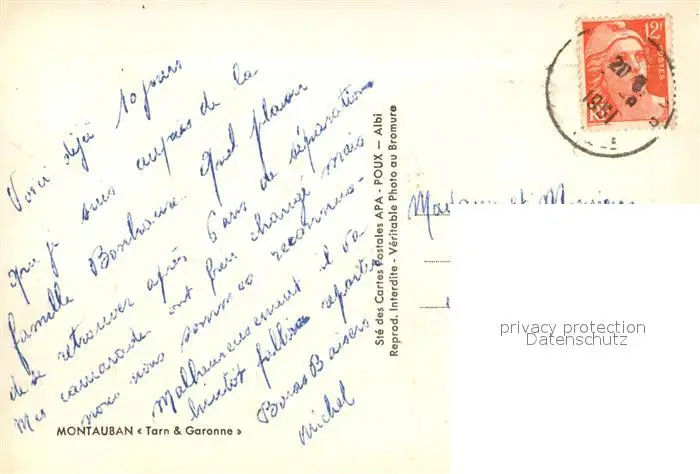 Voici déjà 10 jours
que je suis auprès de la
famille Quel plaisir
de se retrouver après 6 ans de séparation
Mes camarades ont peu changé mais
nous nous sommes reconnus.
Malheureusement il va
bientôt falloir repartir
Bons Baisers
Michel
MONTAUBAN « Tarn & Garonne »
Sté des Cartes Postales APA - POUX — Albi
Reprod. Interdite - Véritable Photo au Bromure
12F
POSTES
20
1951
Madame et Monsieur
privacy protection
Datenschutz